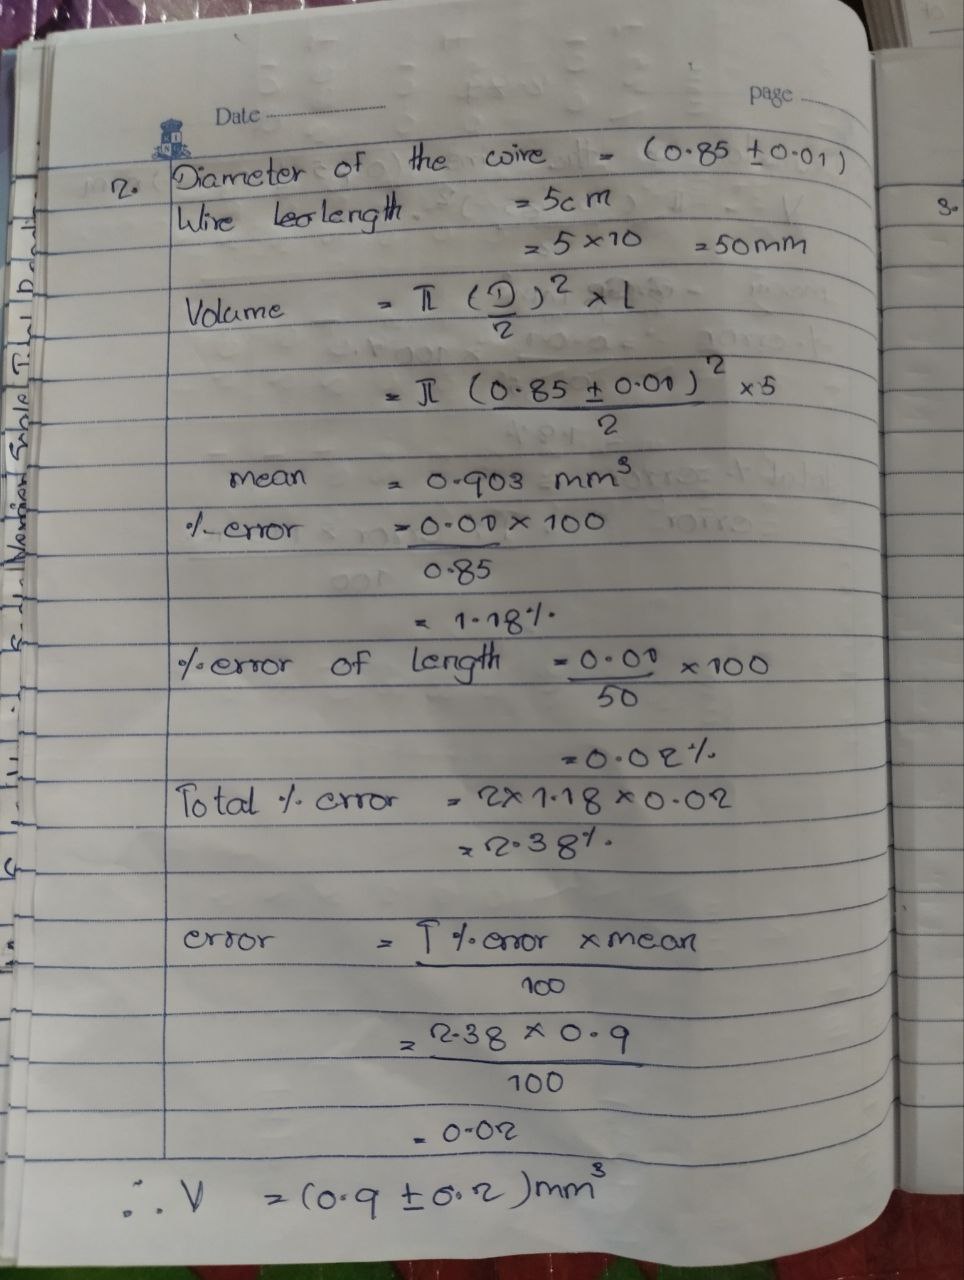 Date
page
2. Diameter of the wire = (0.85 ± 0.01)
Wire length = 5cm
= 5 × 10 = 50mm
Volume = π (D/2)² × l
= π (0.85 ± 0.01/2)² × 5
mean = 0.903 mm³
% error = 0.01/0.85 × 100
= 1.18%.
% error of length = 0.01/50 × 100
= 0.02%
Total % error = 2×1.18 × 0.02
= 2.38%.
error = T % error × mean/100
= 2.38 × 0.9/100
= 0.02
∴ V = (0.9 ± 0.2) mm³
3.